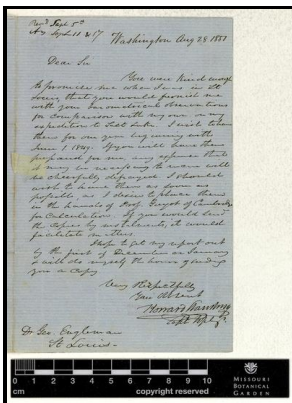 Recd Sept 5th
Washington Aug 28 1851
Dear Sir
You were kind enough
to promise me when I was in St
Louis, that you would furnish me
with your barometrical observations
for comparison with my own on my
expedition to Salt Lake. I wish to have
them for one year beginning with
June 1. 1849. If you will have them
prepared for me, any expense that
it may be necessary to incur will
be cheerfully defrayed. I should
wish to have them as soon as
possible as I desire to place them
in the hands of Prof. Guyot of Cambridge
for calculation. If you would send
the copies by instalments, it would
facilitate matters.
I hope to get my report out
by the first of December or January
& will do myself the honor of sending
you a copy
Very Respectfully
Howard Stansbury
Dr Geo Engleman
St Louis-
0 1 2 3 4 5 6 7 8 9 10
cm
copyright reserved
MISSOURI
BOTANICAL
GARDEN